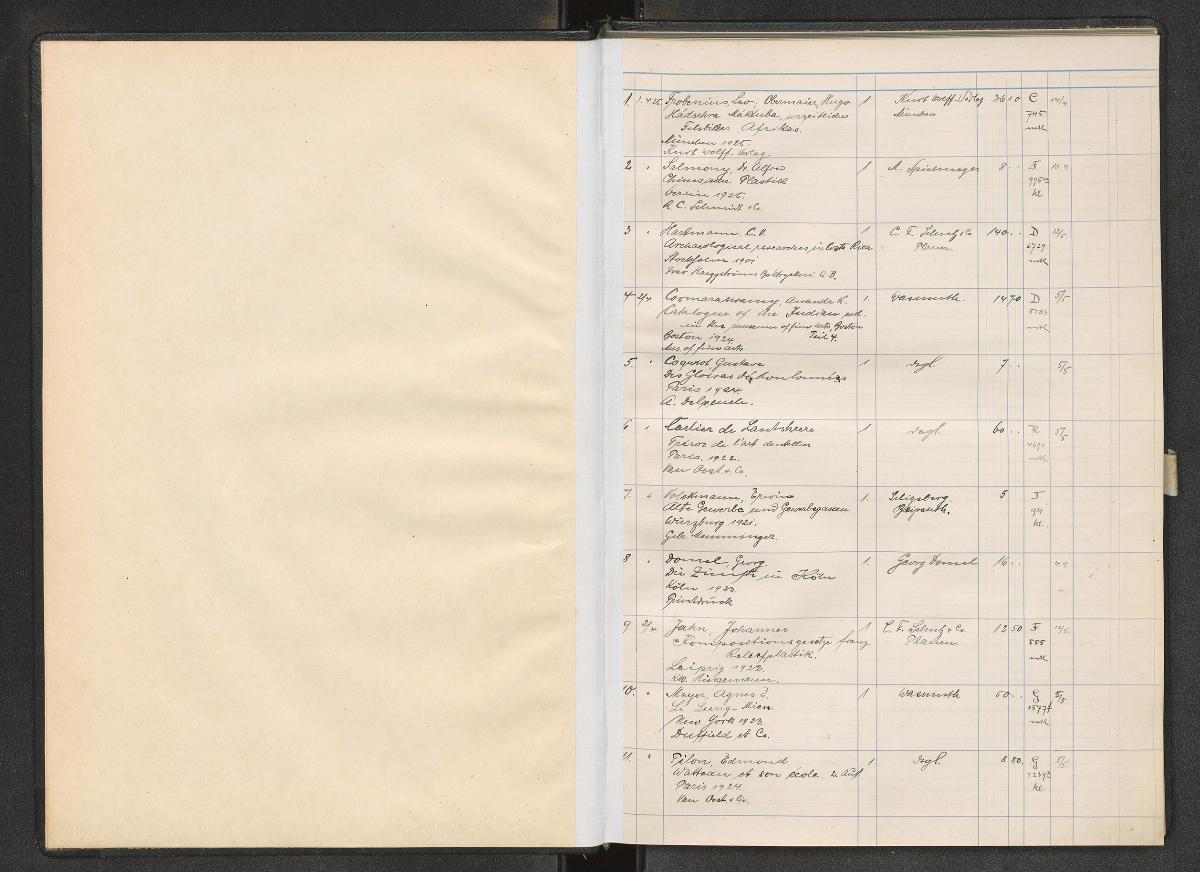 1. 1.4.25 Frobenius, Leo, Obermaier, Hugo 1 Kurt Wolff-Verlag 36 10 C 14/4
Hádschra Máktuba, urzeitliche München 745
Felsbilder Afrikas. mtl
München 1925.
Kurt Wolff Verlag.
2 " Salmony, Dr. Alfred 1 A. Spielmeyer 8 . . F 10.4.
Chinesische Plastik
Berlin 1925. kl
R. C. Schmidt & Co.
3 " Hartmann C. V. 1 C. F. Schulz & Co 140 . . D 12/5
Archaeological researches in Costa Rica Plauen 6729
Stockholm 1901 mtl
Ivar Haeggströms Boktryckeri A. B.
4 2/4 Coomaraswamy, Ananda K. 1. Wasmuth. 14 70 D 5/5
Catalogue of the Indian col.
in the museum of fine arts, Boston mtl
Boston 1924. Teil 4.
Mus. of fine arts.
5. " Coquiot, Gustave 1 dsgl. 7 . . 5/5
Des Gloires déboulonnées
Paris 1924.
A. Delpeuch.
6 " Carlier de Lantsheere 1 dsgl. 60 . . R 5/5
Trésor de l'art dentellier 4690
Paris. 1922. mtl
Van Oest & Co.
7. " Volckmann, Erwin 1. Seligsberg. 5 J
Alte Gewerbe und Gewerbegassen Bayreuth. 94
Würzburg 1921. kl.
Gebr. Memminger.
8 " Domel, Georg. 1. Georg Domel 16 . .
Die Zünfte in Köln
Köln 1920.
Privatdruck
9 2/4 Jahn, Johannes 1 C. F. Schulz & Co. 12 50 F 12/5.
Kompositionsgesetze franz. Plauen 555
Reliefplastik. mtl
Leipzig 1922.
Hiersemann.
10. " Meyer, Agnes E. 1 Wasmuth 50 . . G 5/5.
Li Lung-Mien.
New York 1923. mtl
Duffield et Co.
11. " Pilon, Edmond 1 dsgl. 8 80. G 5/5
Watteau et son école 2. Aufl
Paris 1924. kl
Van Oest & Co.